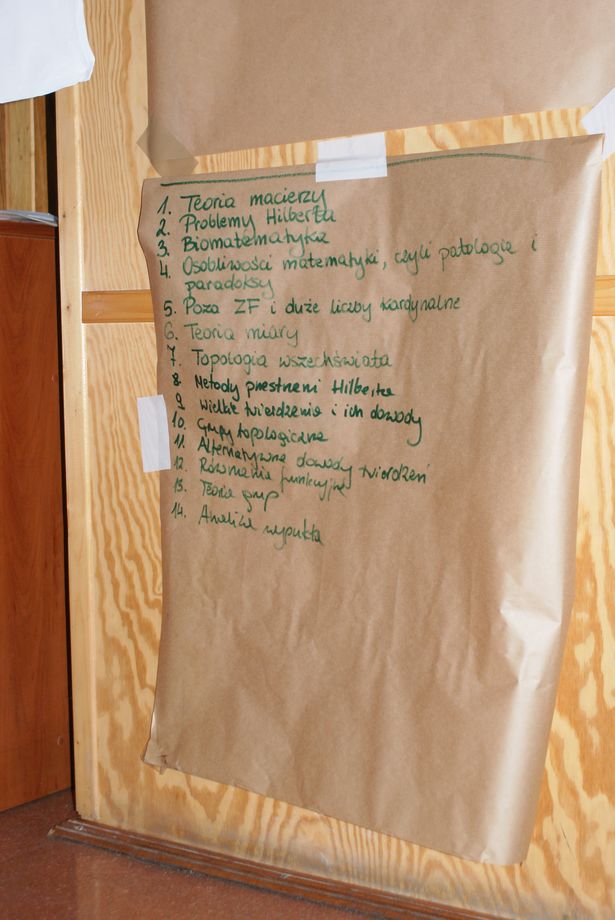 1. Teoria macierzy
2. Problemy Hilberta
3. Biomatematyka
4. Osobliwości matematyki, czyli patologie i
paradoksy
5. Poza ZF i duże liczby kardynalne
6. Teoria miary
7. Topologia wszechświata
8. Metody przestrzeni Hilberta
9. Wielkie twierdzenia i ich dowody
10. Grupy topologiczne
11. Alternatywne dowody twierdzeń
12. Równania funkcyjne
13. Teoria grup
14. Analiza wypukła